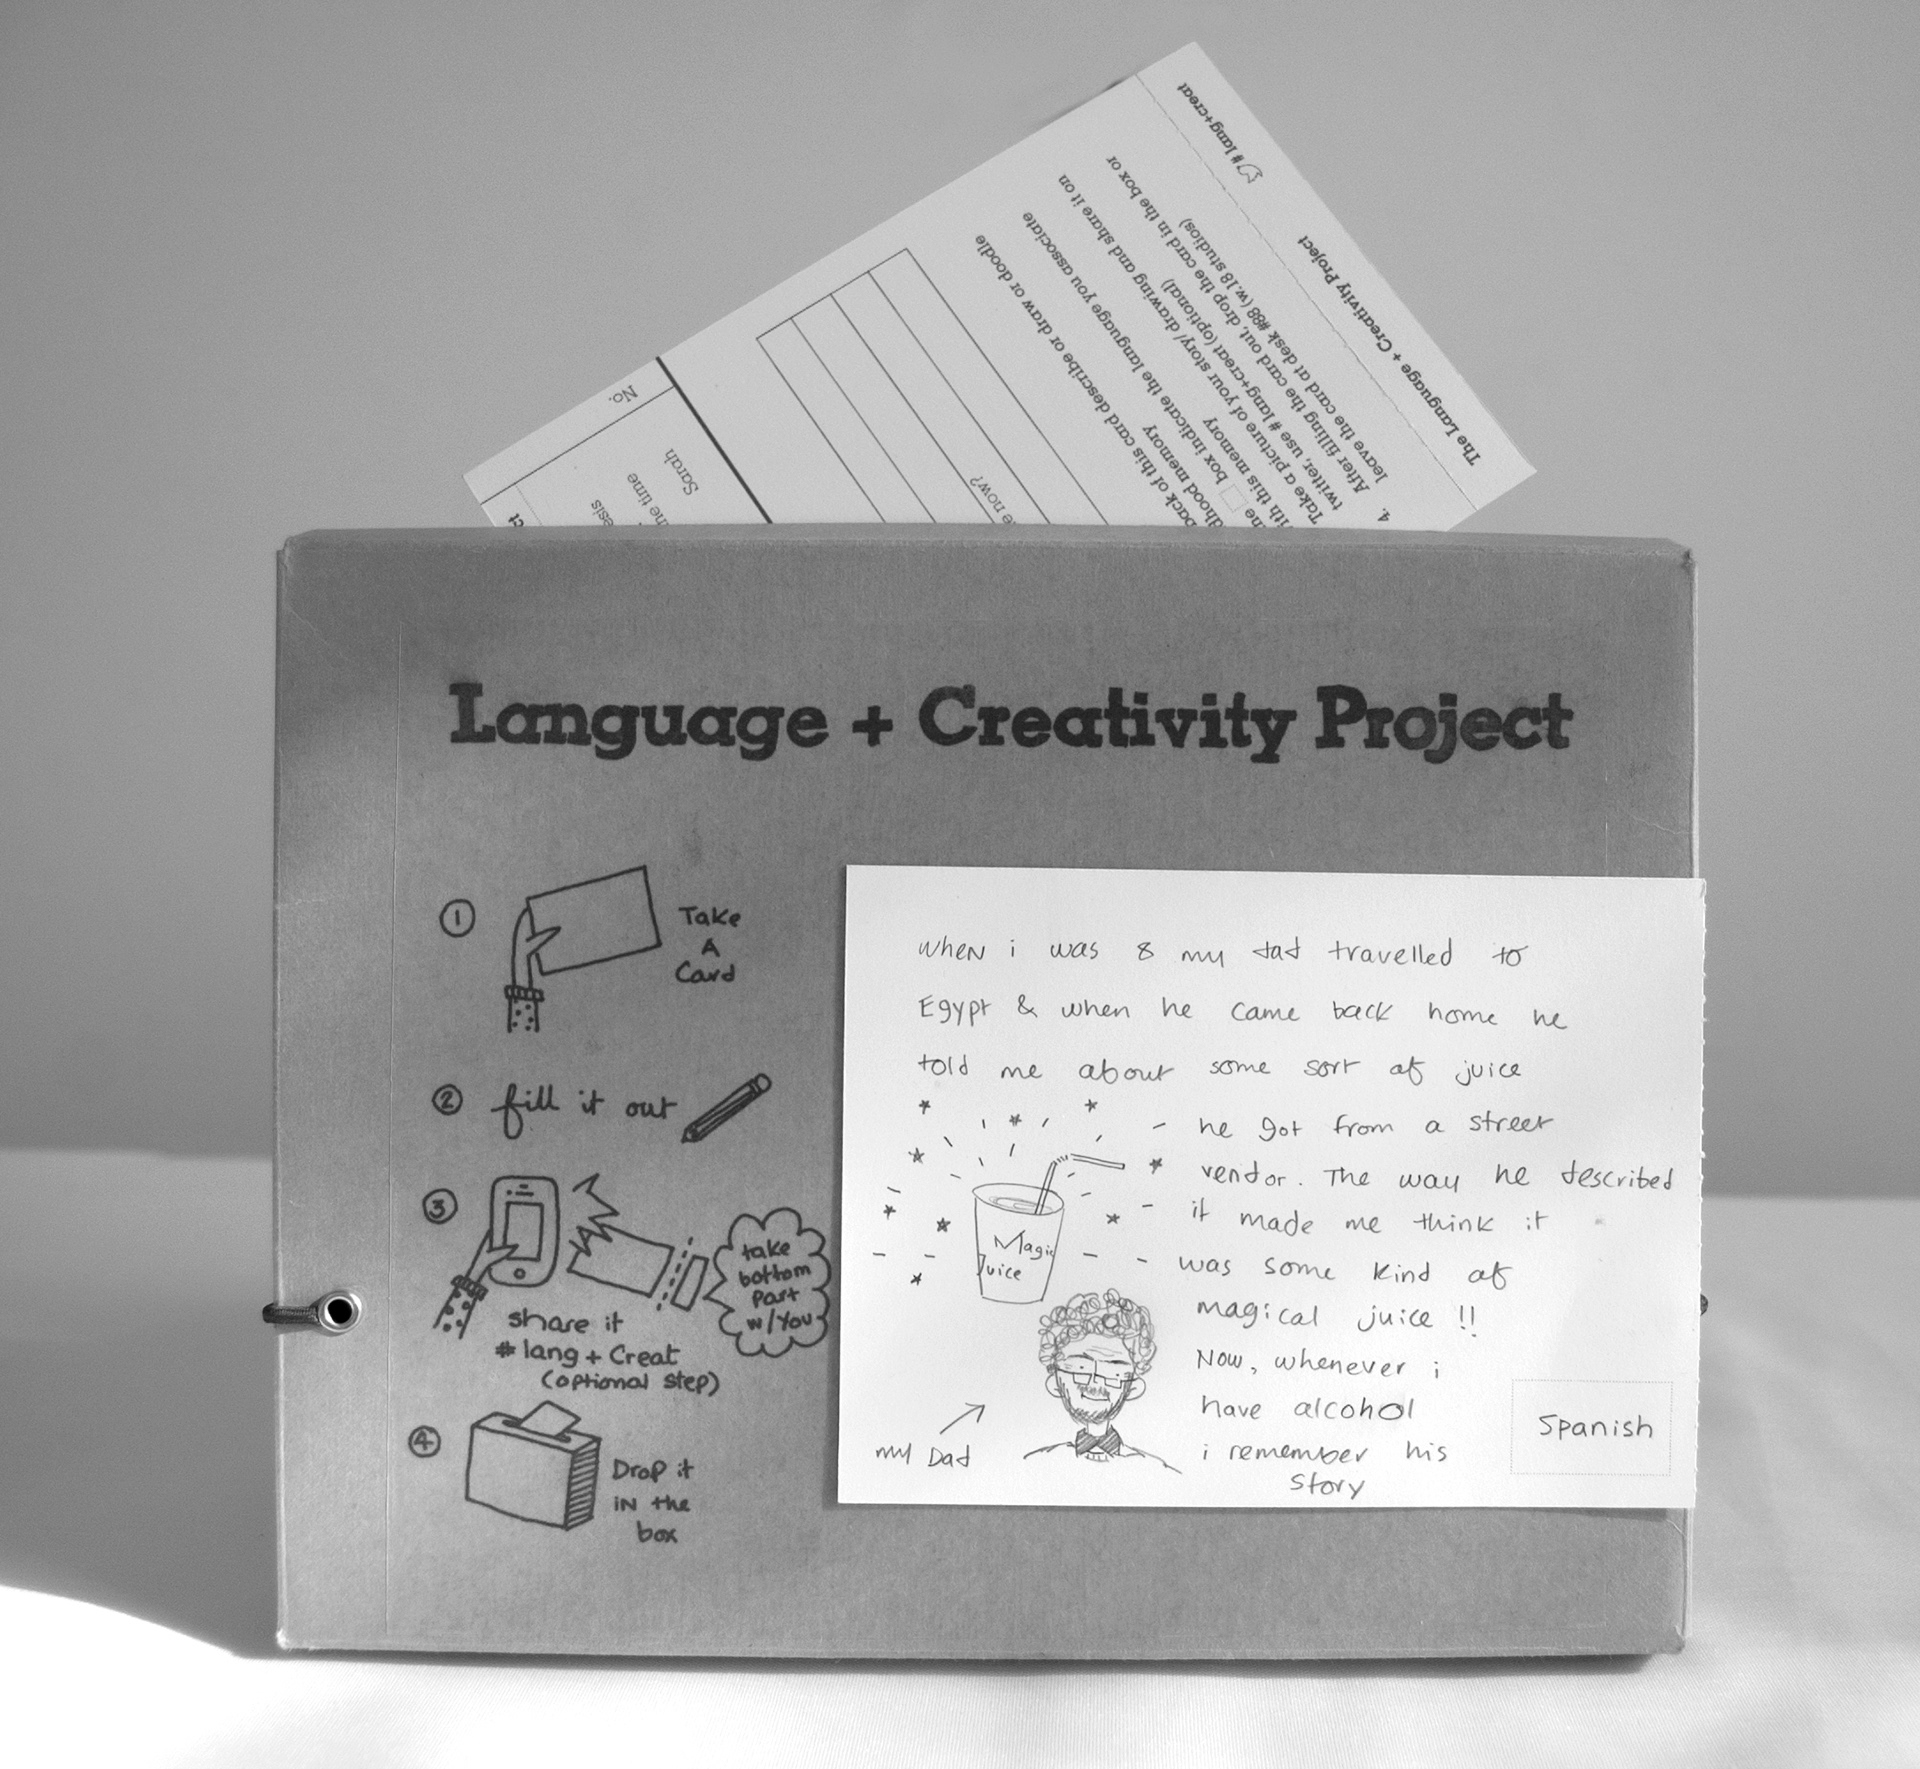 # lang+creat
The Language + Creativity Project
4. After filling the card out, drop the card in the box or
leave the card at desk #88 (w.18 studios)
Take a picture of your story/ drawing and share it on
twitter, use # lang+creat (optional)
box indicate the language you associate
this memory
back of this card describe or draw or doodle
memory
now?
No.
Sarah
time
Language + Creativity Project
1 Take
A
Card
2 fill it out
3 share it
# lang + Creat
(optional step)
take
bottom
part
w/You
4 Drop it
iN the
box
when i was 8 my dad travelled to
Egypt & when he came back home he
told me about some sort of juice
he got from a street
vendor. The way he described
it made me think it
was some kind of
magical juice !!
Now, whenever i
have alcohol
i remember his
story
Magic
Juice
my Dad
Spanish